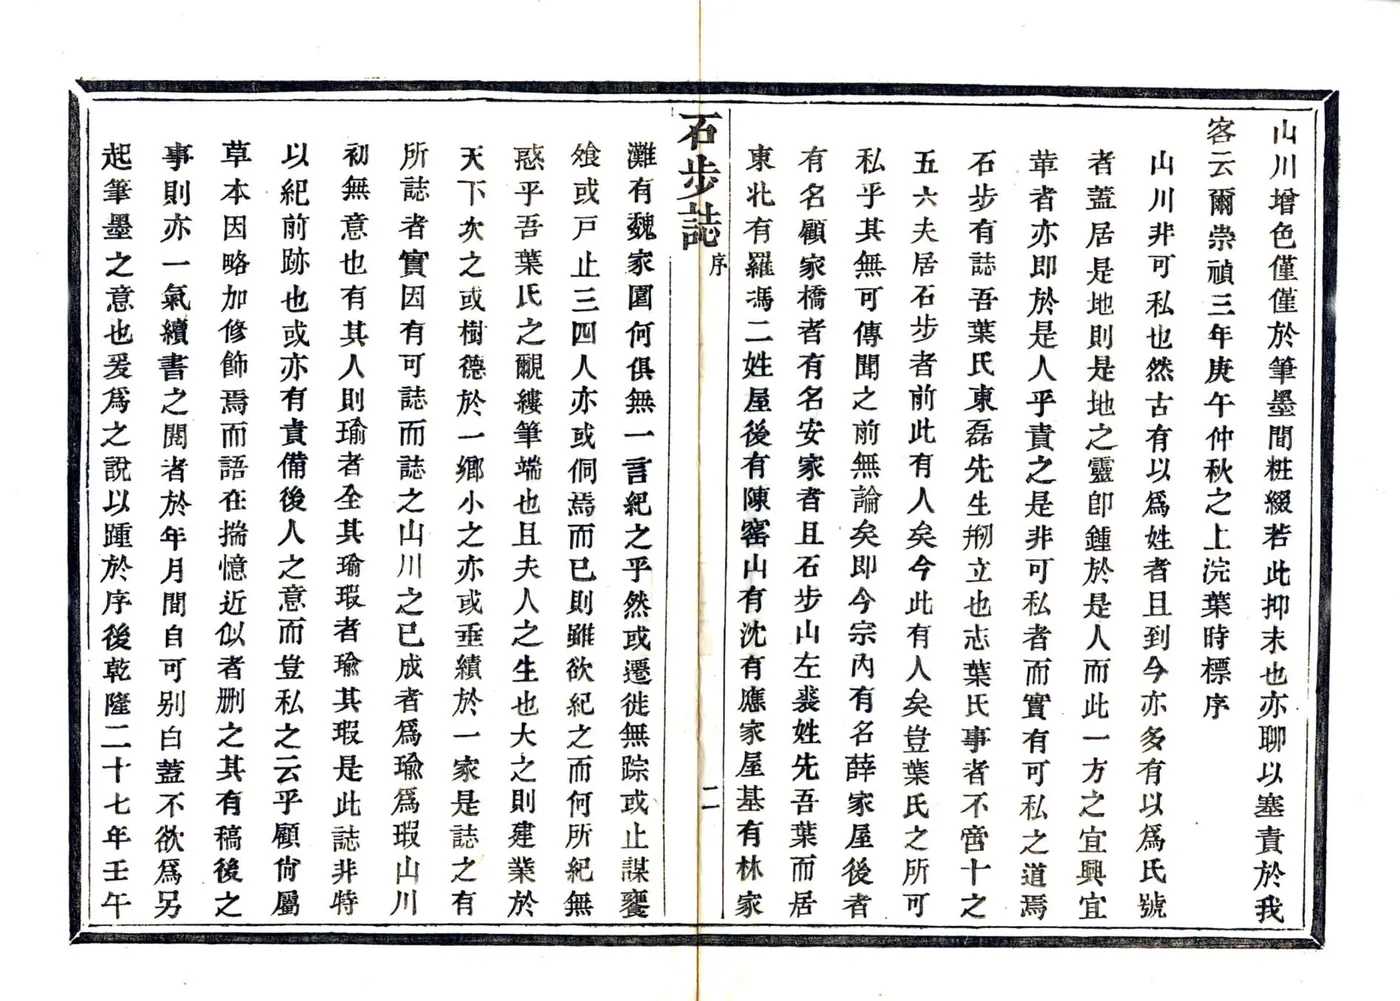 山川增色僅僅於筆墨間粧綴若此抑末也亦聊以塞責於我
客云爾崇禎三年庚午仲秋之上浣葉時標序
山川非可私也然古有以爲姓者且到今亦多有以爲氏號
者蓋居是地則是地之靈卽鍾於是人而此一方之宜興宜
革者亦即於是人乎責之是非可私者而實有可私之道焉
石步有誌吾葉氏東磊先生剏立也志葉氏事者不啻十之
五六夫居石步者前此有人矣今此有人矣豈葉氏之所可
私乎其無可傳聞之前無論矣即今宗內有名薛家屋後者
有名顧家橋者有名安家者且石步山左裘姓先吾葉而居
東北有羅馮二姓屋後有陳窰山有沈有應家屋基有林家
石步誌 序 二
灘有魏家園何俱無一言紀之乎然或遷徙無踪或止謀饔
飧或戸止三四人亦或侗焉而已則雖欲紀之而何所紀無
惑乎吾葉氏之覼縷筆端也且夫人之生也大之則建業於
天下次之或樹德於一鄉小之亦或垂績於一家是誌之有
所誌者實因有可誌而誌之山川之已成者爲瑜爲瑕山川
初無意也有其人則瑜者全其瑜瑕者瑜其瑕是此誌非特
以紀前跡也或亦有責備後人之意而豈私之云乎顧尙屬
草本因略加修飾焉而語在揣憶近似者删之其有稿後之
事則亦一氣續書之閱者於年月間自可别白蓋不欲爲另
起筆墨之意也爰爲之說以踵於序後乾隆二十七年壬午